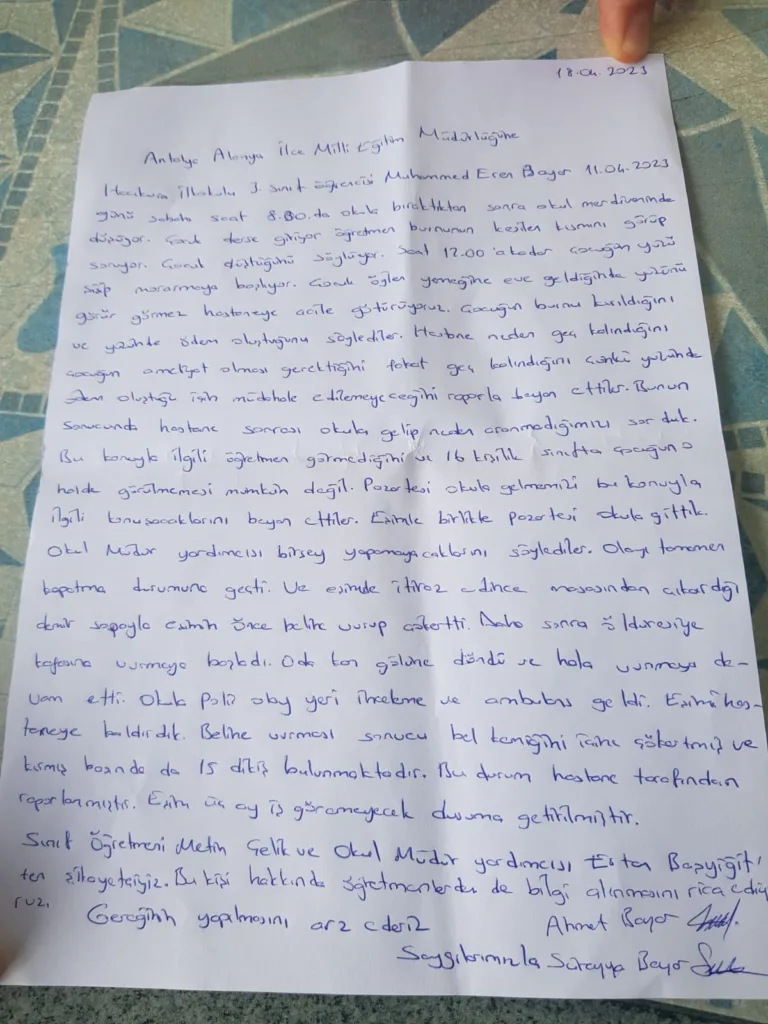 18.04.2023
Antalya Alanya İlce Milli Eğitim Müdürlüğüne
Hacıkura İlkokulu 3. sınıf öğrencisi Muhammed Eren Bayar 11.04.2023
günü sabah saat 8.30.da okula bıraktıktan sonra okul merdiveninde
düşüyor. Çocuk derse giriyor öğretmen burnunun kesilen kısmını görüp
soruyor. Çocuk düştüğünü söylüyor. Saat 12.00'a kadar çocuğun yüzü
şişip morarmaya başlıyor. Çocuk öğlen yemeğine eve geldiğinde yüzünü
görür görmez hastaneye acile götürüyoruz. Çocuğun burnu kırıldığını
ve yüzünde ödem oluştuğunu söylediler. Hastane neden geç kalındığını
çocuğun ameliyat olması gerektiğini fakat geç kalındığını çünkü yüzünde
ödem oluştuğu için müdahale edilemeyeceğini raporla beyan ettiler. Bunun
sonucunda hastane sonrası okula gelip neden aranmadığımızı sorduk.
Bu konuyla ilgili öğretmen görmediğini ve 16 kişilik sınıfta çocuğun o
halde görülmemesi mümkün değil. Pazartesi okula gelmemizi bu konuyla
ilgili konuşacaklarını beyan ettiler. Eşimle birlikte pazartesi okula gittik.
Okul Müdür yardımcısı birşey yapamayacaklarını söylediler. Olayı tamamen
kapatma durumuna geçti. Ve eşimde itiraz edince masasından çıkardığı
demir sopayla eşimin önce beline vurup çökertti. Daha sonra öldüresiye
kafasına vurmaya başladı. Oda kan gölüne döndü ve hala vurmaya de-
vam etti. Okula Polis olay yeri inceleme ve ambulans geldi. Eşimi has-
taneye kaldırdık. Beline vurması sonucu bel kemiğini içine çökertmiş ve
kırmış başında da 15 dikiş bulunmaktadır. Bu durum hastane tarafından
raporlanmıştır. Eşim üç ay iş göremeyecek duruma getirilmiştir.
Sınıf Öğretmeni Metin Çelik ve Okul Müdür yardımcısı Ertan Başyiğit'
ten şikayetçiyiz. Bu kişi hakkında öğretmenlerden de bilgi alınmasını rica ediyo
ruz.
Gereğinin yapılmasını arz ederiz
Ahmet Bayar
Saygılarımızla Süreyya Bayar